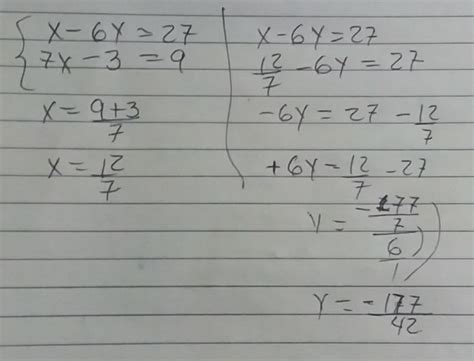 x - 6y = 27
7x - 3 = 9
x = 9+3/7
x = 12/7
x - 6y = 27
12/7 - 6y = 27
-6y = 27 - 12/7
+6y = 12/7 - 27
y = -177/7 / 6/1
y = -177/42